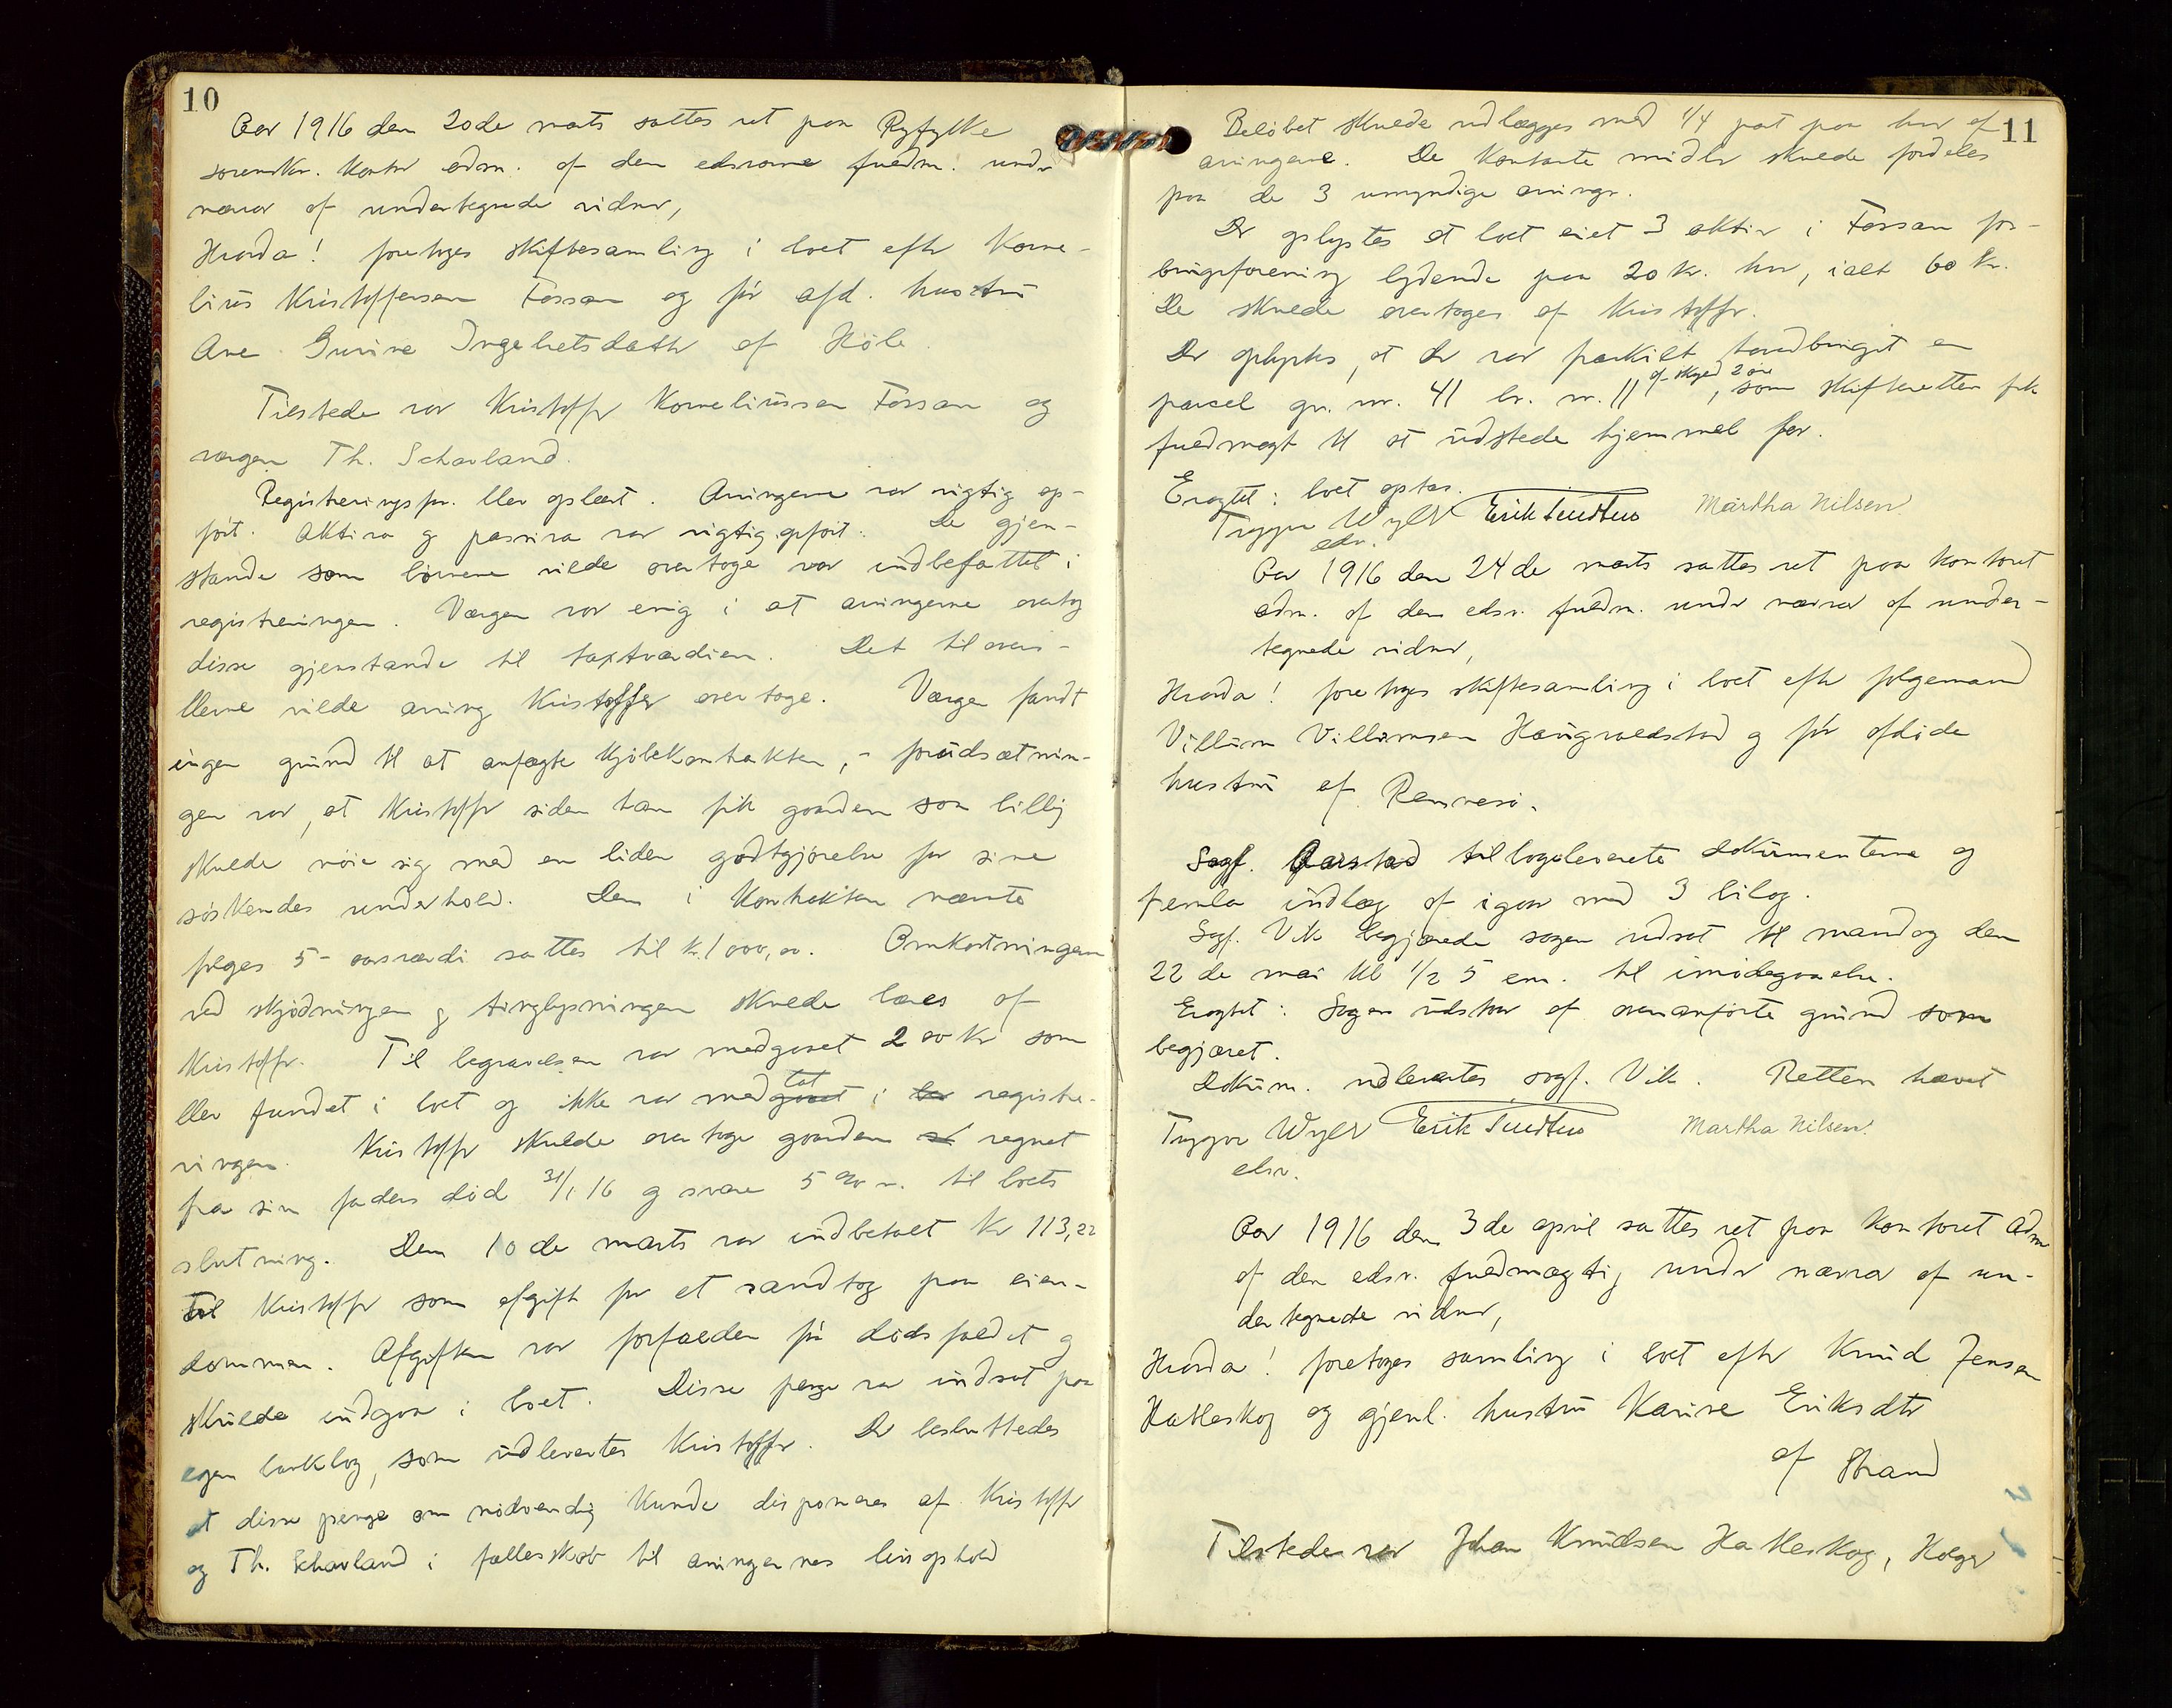 10
Aar 1916 den 20de marts sattes ret paa Ryfylke
sorenskr. kontor adm. af den edsvorne fuldm. under
nærvær af undertegnede vidner,
Hvorda! foretoges skiftesamling i boet efter Korne-
lius Kristoffersen Fossan og før afd. hustru
Ane Gurine Ingebretsdatter af Høle.
Tilstede var Kristoffer Korneliussen Fossan og
vergen Th. Schavland.
Registreringsfor. blev oplæst. Arvingerne var rigtig op-
ført. Aktiva og passiva var rigtig opført. De gjen-
stande som børnene vilde overtage var indbefattet i
registreringen. Værgen var enig i at arvingerne overtog
disse gjenstande til taxtværdien. Det til overs-
blevne vilde arving Kristoffer overtage. Værgen fandt
ingen grund til at anfægte kjøbekontrakten, - forudsætnin-
gen var, at Kristoffer siden han fik gaarden saa billig
skulde nøie sig med en liden godtgjørelse for sine
søskendes underhold. Den i kontrakten nævnte
følges 5-aarsværdi sattes til kr. 1000,00. Omkostningerne
ved skjødningen og tinglysningen skulde bæres af
Kristoffer. Til begravelsen var medgaaet 200 kr som
blev fundet i boet og ikke var medtat i registre-
ringen. Kristoffer skulde overtage gaarden regnet
fra sin faders død 31/1 16 og svare 5 % r. til boets
slutning. Den 10de marts var indbetalt kr 113,22
til Kristoffer som afgift for et sandtag paa eien-
dommen. Afgiften var forfalden før dødsfaldet og
skulde indgaa i boet. Disse penge var indsat paa
egen bankbog, som udleveredes Kristoffer. Der besluttedes
at disse penge om nødvendig kunde disponeres af Kristoffer
og Th. Schavland i fællesskab til arvingernes livsophold
11
Beløbet skulde udlægges med 1/4 part paa hver af
arvingerne. De kontante midler skulde fordeles
paa de 3 umyndige arvinger.
Der oplystes at boet eiet 3 aktier i Fossan for-
brugsforening lydende paa 20 kr. hver, ialt 60 kr.
De skulde overtages af Kristoffer.
Der oplystes, at der var fraskilt hovedbruget en
parcel gr. nr. 41 br. nr. 11 af skyld 2 øre, som skifteretten fik
fuldmagt til at udstede hjemmel for.
Eragtet: boet optas.
Trygve Wyller Erik Sundtuo Martha Nilsen
edsv.
Aar 1916 den 24de marts sattes ret paa kontoret
adm. af den edsv. fuldm. under nærvær af under-
tegnede vidner,
Hvorda! foretoges skiftesamling i boet efter følgemand
Villum Villumsen Haugvaldstad og før afdøde
hustru af Rennesø.
Sagf. Aarstad tilbageleverete dokumenterne og
fremla indlæg af igaar med 3 bilag.
Sagf. Vik begjærede sagen udsat til mandag den
22de mai kl 1/2 5 em. til imødegaaelse.
Eragtet: Sagen udstaar af ovenanførte grund som
begjæret.
Dokum. udlevertes sagf. Vik. Retten hævet
Trygve Wyller Erik Sundtuo Martha Nilsen.
edsv.
Aar 1916 den 3de april sattes ret paa kontoret adm
af den edsv. fuldmægtig under nærvær af un-
dertegnede vidner,
Hvorda! foretoges samling i boet efter Knud Jensen
Hatleskog og gjenl. hustru Karine Eriksdtr
af Strand
Tilstede var Johan Knudsen Hatleskog, Holger